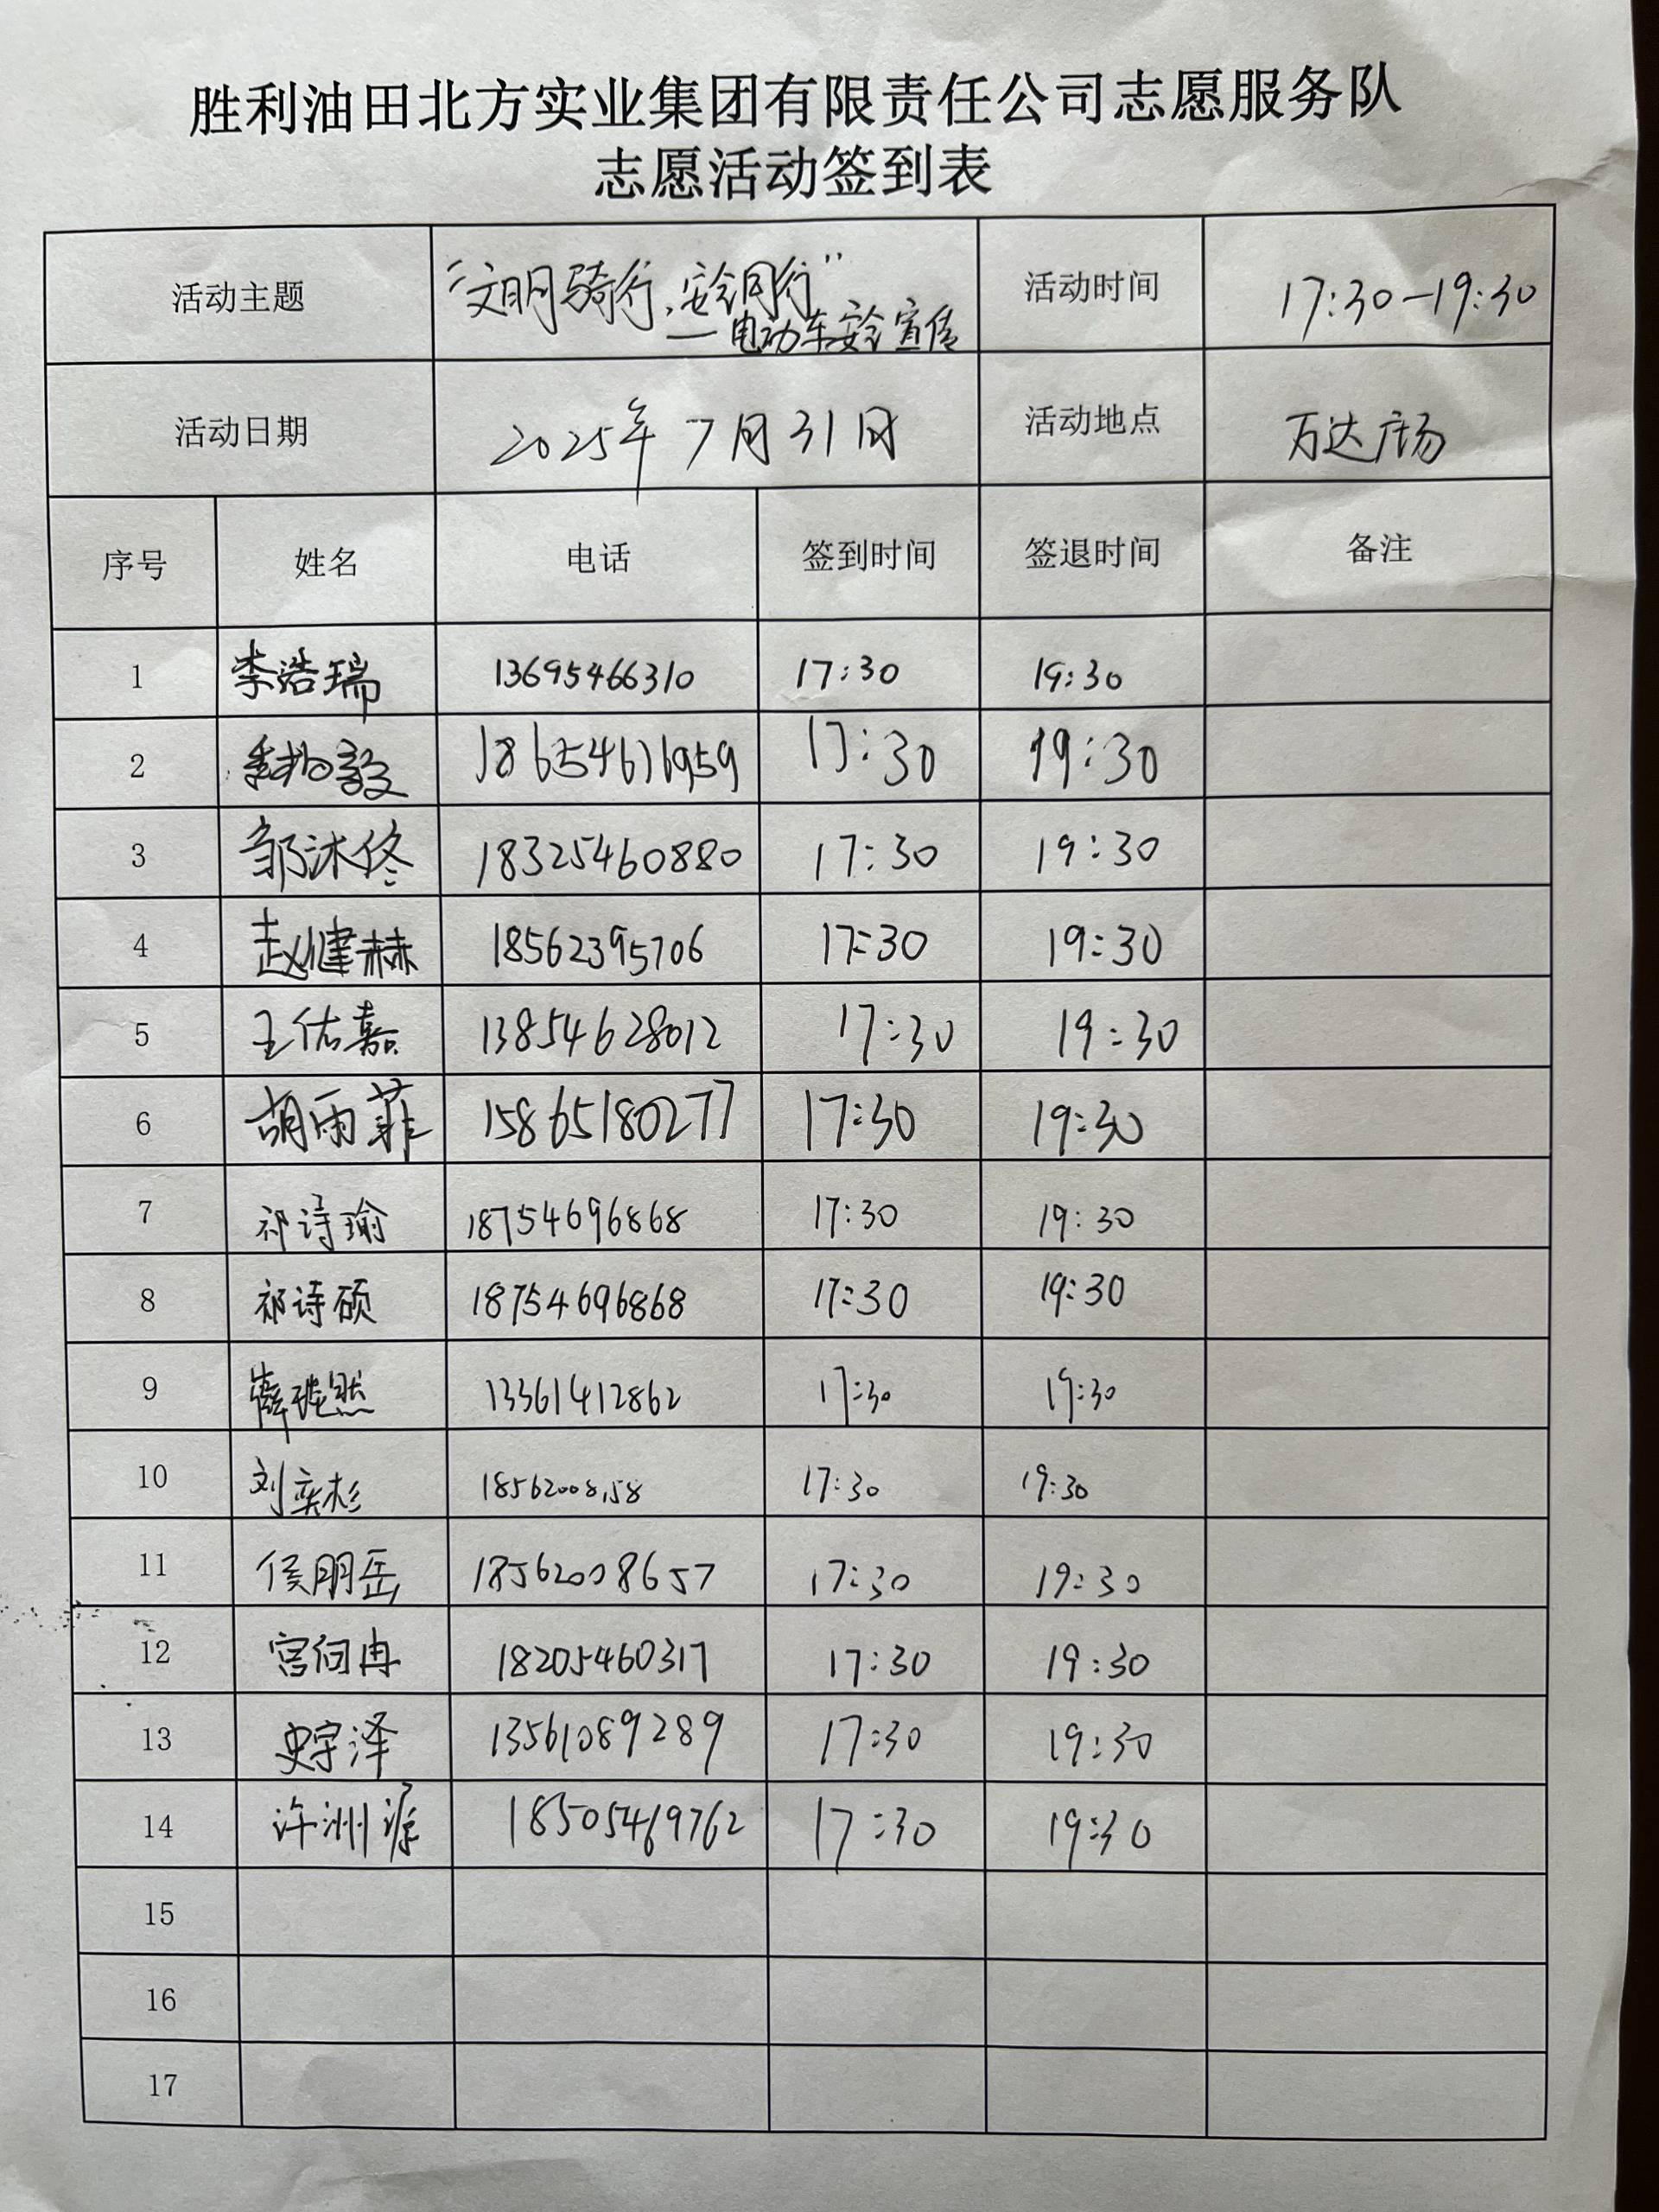 胜利油田北方实业集团有限责任公司志愿服务队
志愿活动签到表
活动主题 “文明骑行,安全同行” 活动时间 17:30-19:30
—电动车安全宣传
活动日期 2025年7月31日 活动地点 万达广场
序号 姓名 电话 签到时间 签退时间 备注
1 李浩瑞 13695466310 17:30 19:30
2 18654616959 17:30 19:30
3 郭沐佟 18325460880 17:30 19:30
4 赵健赫 18562395706 17:30 19:30
5 王佑嘉 13854628012 17:30 19:30
6 胡雨菲 15865180277 17:30 19:30
7 祁诗瑜 18754696868 17:30 19:30
8 祁诗硕 18754696868 17:30 19:30
9 13361412862 17:30 19:30
10 刘奕杉 17:30 19:30
11 侯朋岳 18562008657 17:30 19:30
12 18205460317 17:30 19:30
13 史宇泽 13561089289 17:30 19:30
14 许洲源 18505469762 17:30 19:30
15
16
17